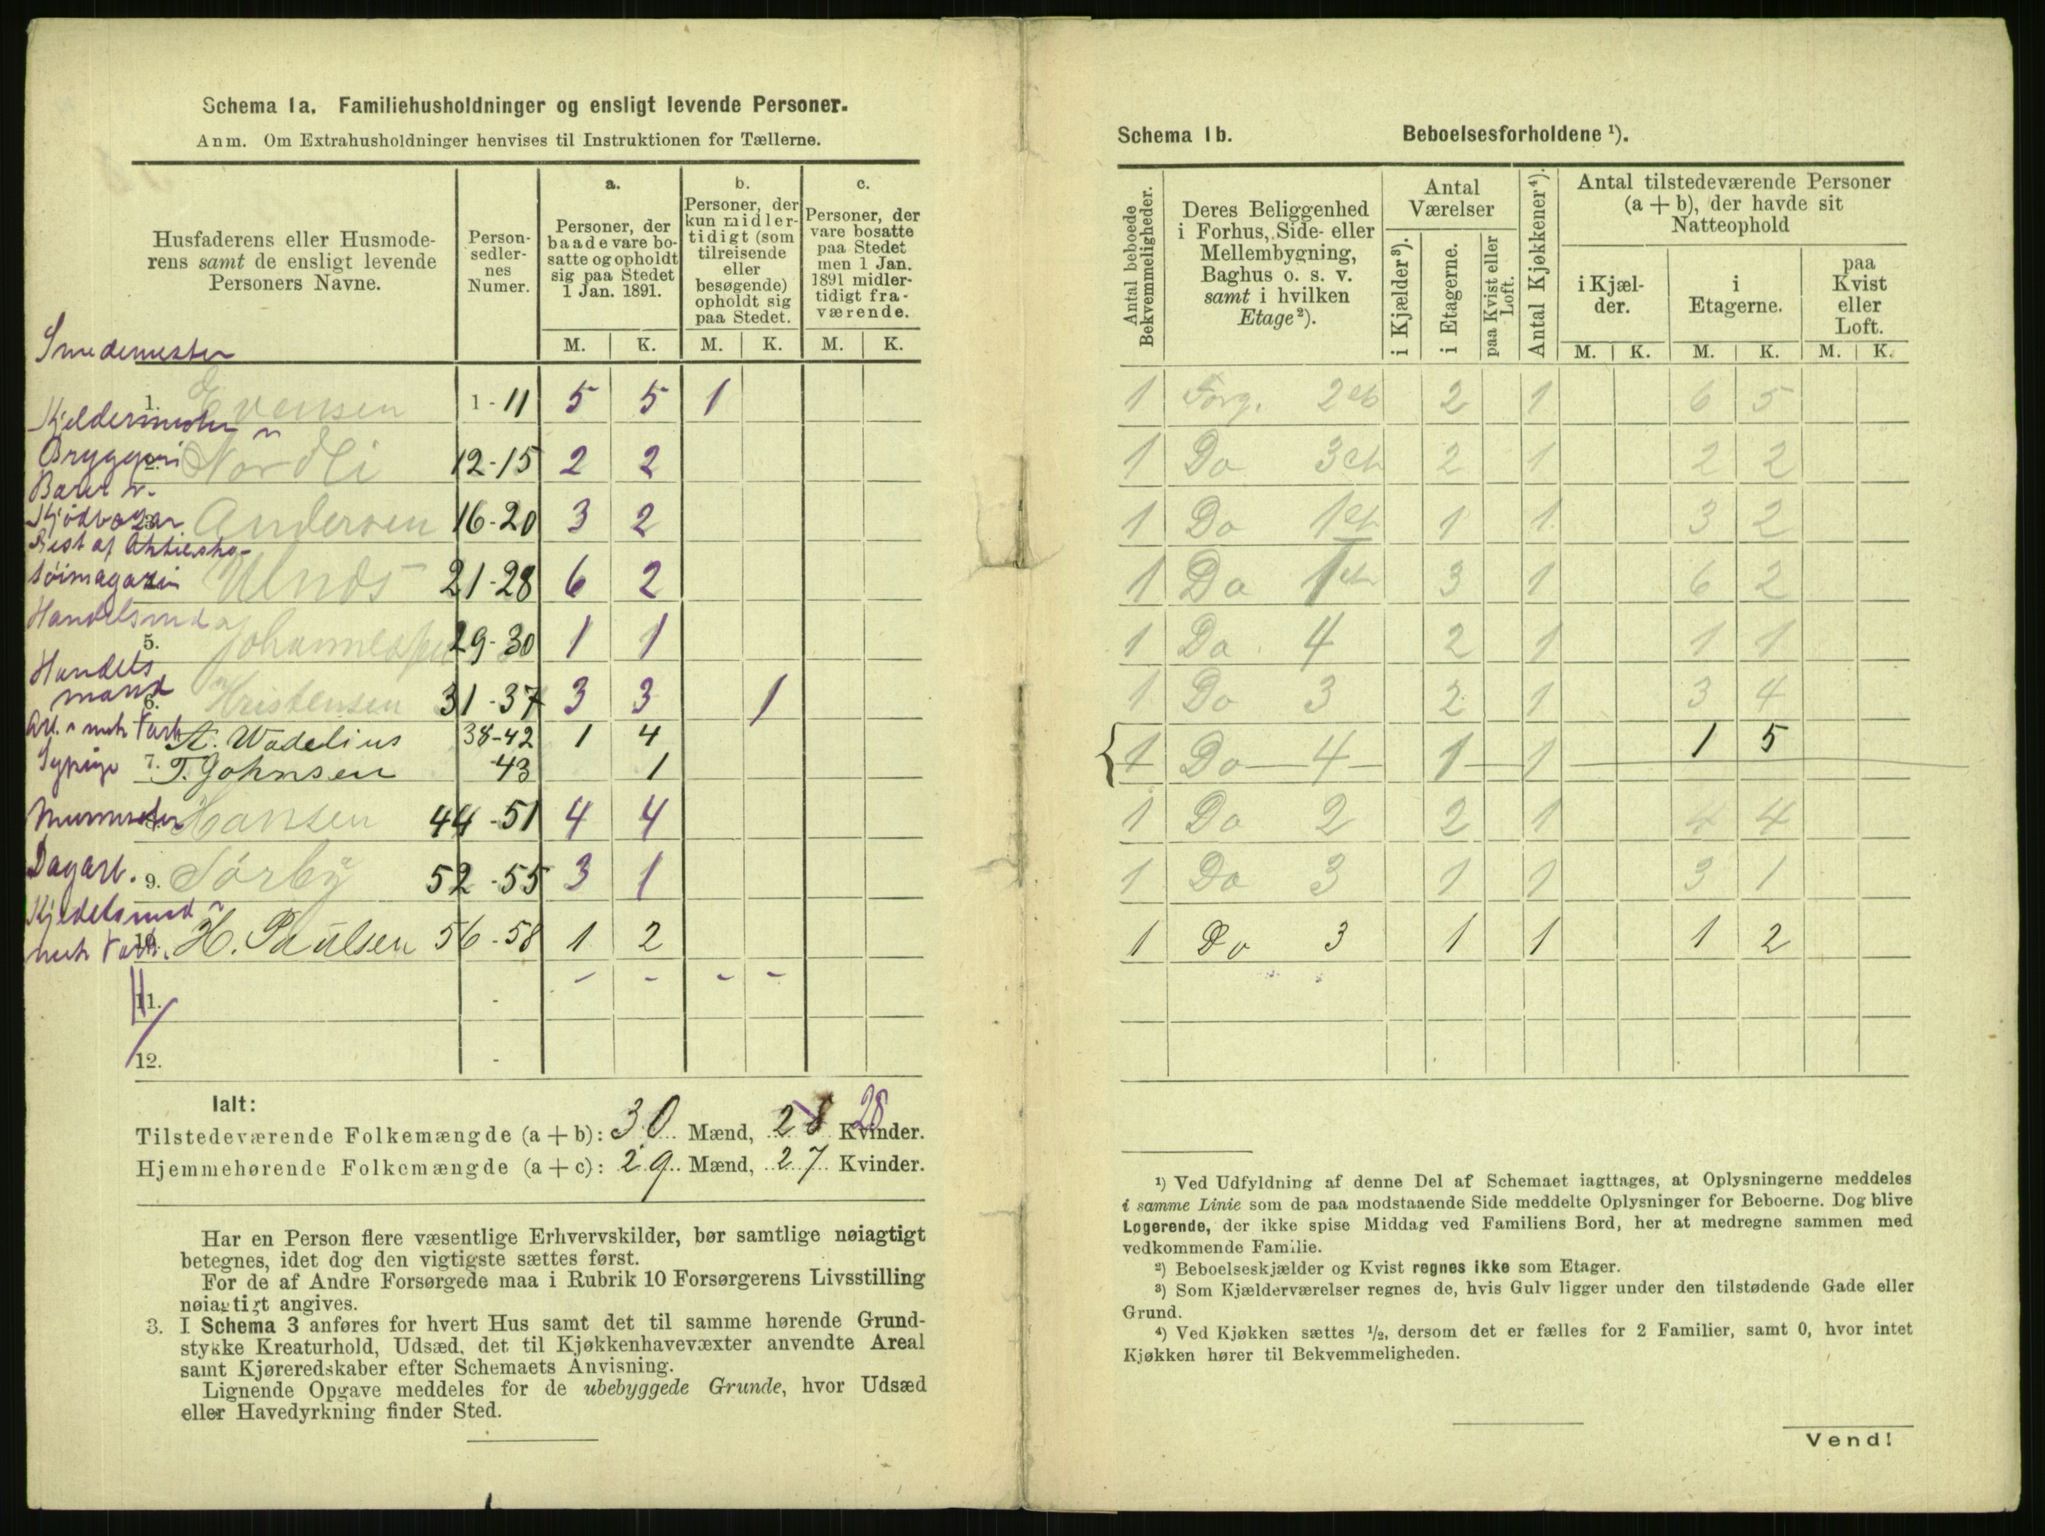 Schema 1a. Familiehusholdninger og ensligt levende Personer.
Anm. Om Extrahusholdninger henvises til Instruktionen for Tællerne.
Husfaderens eller Husmoderens samt de ensligt levende Personers Navne.
Person-sedler-nes Numer.
a. Personer, der baade vare bosatte og opholdt sig paa Stedet 1 Jan. 1891.
b. Personer, der kun midlertidigt (som tilreisende eller besøgende) opholdt sig paa Stedet.
c. Personer, der vare bosatte paa Stedet men 1 Jan. 1891 midlertidigt fraværende.
M. K. M. K. M. K.
Smedemester
1. Evensen 1-11 5 5 1
Kjeldermester
Bryggeri
2. Nordli 12-15 2 2
3. Andersen 16-20 3 2
Best af Aktiesko-
tøimagazin
21-28 6 2
5. 29-30 1 1
Handels
mand
6. Kristensen 31-37 3 3 1
A. Wadelius 38-42 1 4
Sypige 7. T. Johnsen 43 1
Hansen 44-51 4 4
Dagarb. 9. Sørby 52-55 3 1
10. H. Paulsen 56-58 1 2
11. - - - - -
12. -
Ialt:
Tilstedeværende Folkemængde (a + b): 30 Mænd, 28 28 Kvinder.
Hjemmehørende Folkemængde (a + c): 29 Mænd, 27 Kvinder.
Har en Person flere væsentlige Erhvervskilder, bør samtlige nøiagtigt
betegnes, idet dog den vigtigste sættes først.
For de af Andre Forsørgede maa i Rubrik 10 Forsørgerens Livsstilling
nøiagtigt angives.
3. I Schema 3 anføres for hvert Hus samt det til samme hørende Grund-
stykke Kreaturhold, Udsæd, det til Kjøkkenhavevæxter anvendte Areal
samt Kjøreredskaber efter Schemaets Anvisning.
Lignende Opgave meddeles for de ubebyggede Grunde, hvor Udsæd
eller Havedyrkning finder Sted.
Schema 1b. Beboelsesforholdene ¹).
Antal beboede Bekvemmeligheder.
Deres Beliggenhed i Forhus, Side- eller Mellembygning, Baghus o. s. v. samt i hvilken Etage²).
Antal Værelser
i Kjælder³).
i Etagerne.
paa Kvist eller Loft.
Antal Kjøkkener⁴).
Antal tilstedeværende Personer (a + b), der havde sit Natteophold
i Kjælder.
i Etagerne.
paa Kvist eller Loft.
M. K. M. K. M. K.
1 Forg. 2et 2 1 6 5
1 Do 3et 2 1 2 2
1 Do 1et 1 1 3 2
1 Do 1et 3 1 6 2
1 Do 4 2 1 1 1
1 Do 3 2 1 3 4
1 Do 4 1 1 1 5
1 Do 2 2 1 4 4
1 Do 3 1 1 3 1
1 Do 3 1 1 1 2
¹) Ved Udfyldning af denne Del af Schemaet iagttages, at Oplysningerne meddeles
i samme Linie som de paa modstaaende Side meddelte Oplysninger for Beboerne. Dog blive
Logerende, der ikke spise Middag ved Familiens Bord, her at medregne sammen med
vedkommende Familie.
²) Beboelseskjælder og Kvist regnes ikke som Etager.
³) Som Kjælderværelser regnes de, hvis Gulv ligger under den tilstødende Gade eller
Grund.
⁴) Ved Kjøkken sættes ½, dersom det er fælles for 2 Familier, samt 0, hvor intet
Kjøkken hører til Bekvemmeligheden.
Vend!